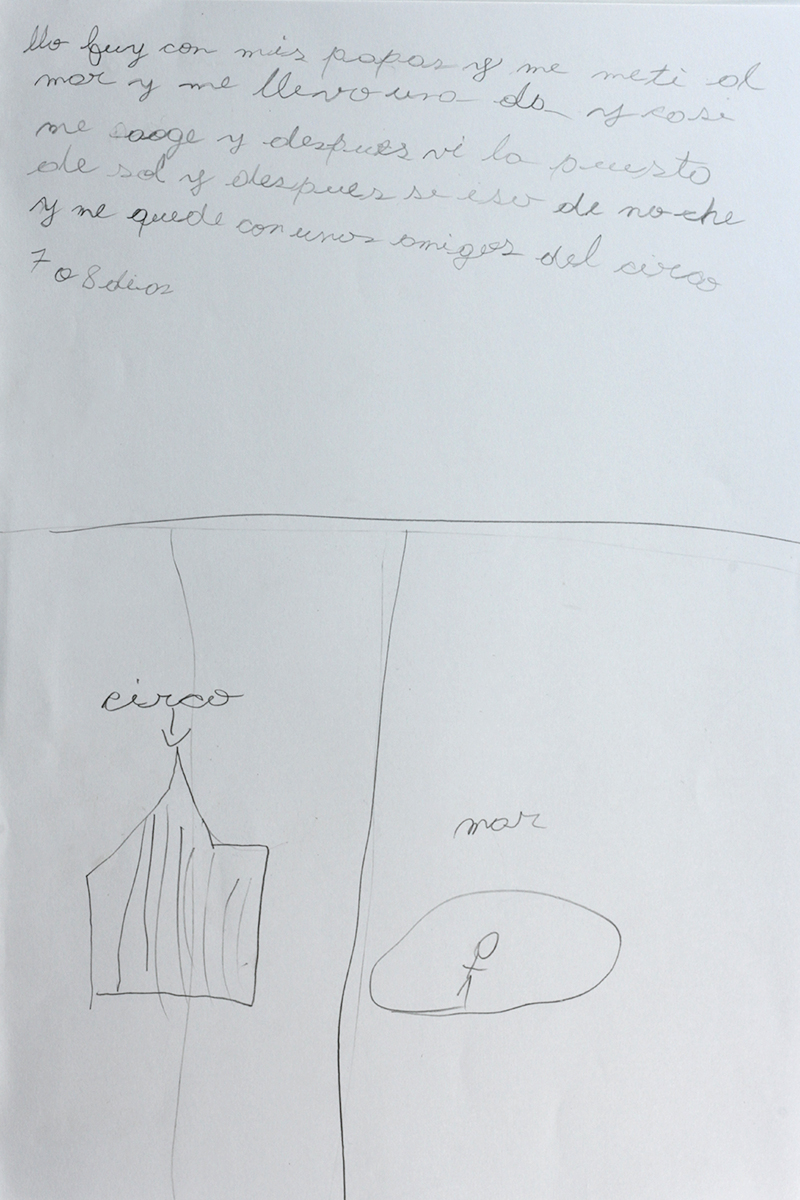 llo fuy con mis papas y me meti al
mar y me llevo una ola y casi
me aoge y despues vi la puesta
de sol y despues se iso de noche
y me quede con unos amigos del circo
7 o 8 dias
circo
mar